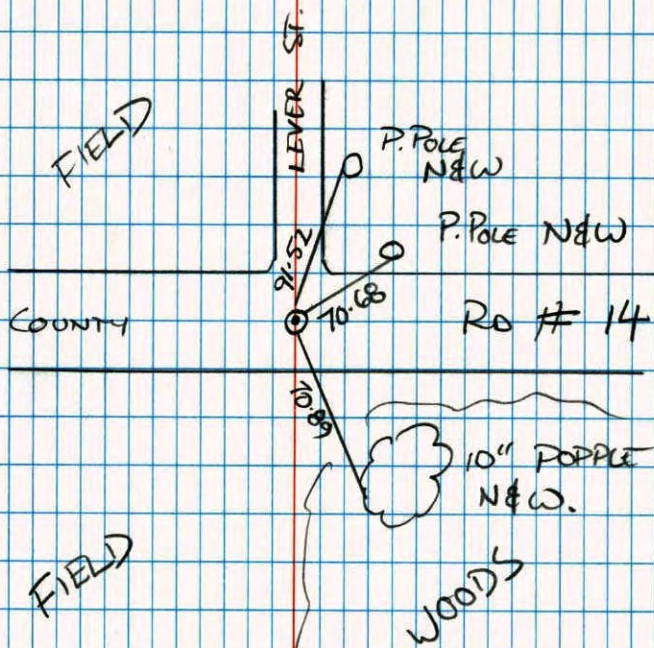 LEVER ST.
FIELD
P.POLE
N&W
P.POLE N&W
91.52
70.68
COUNTY RD # 14
70.89
10" POPPLE
N&W.
FIELD
WOODS